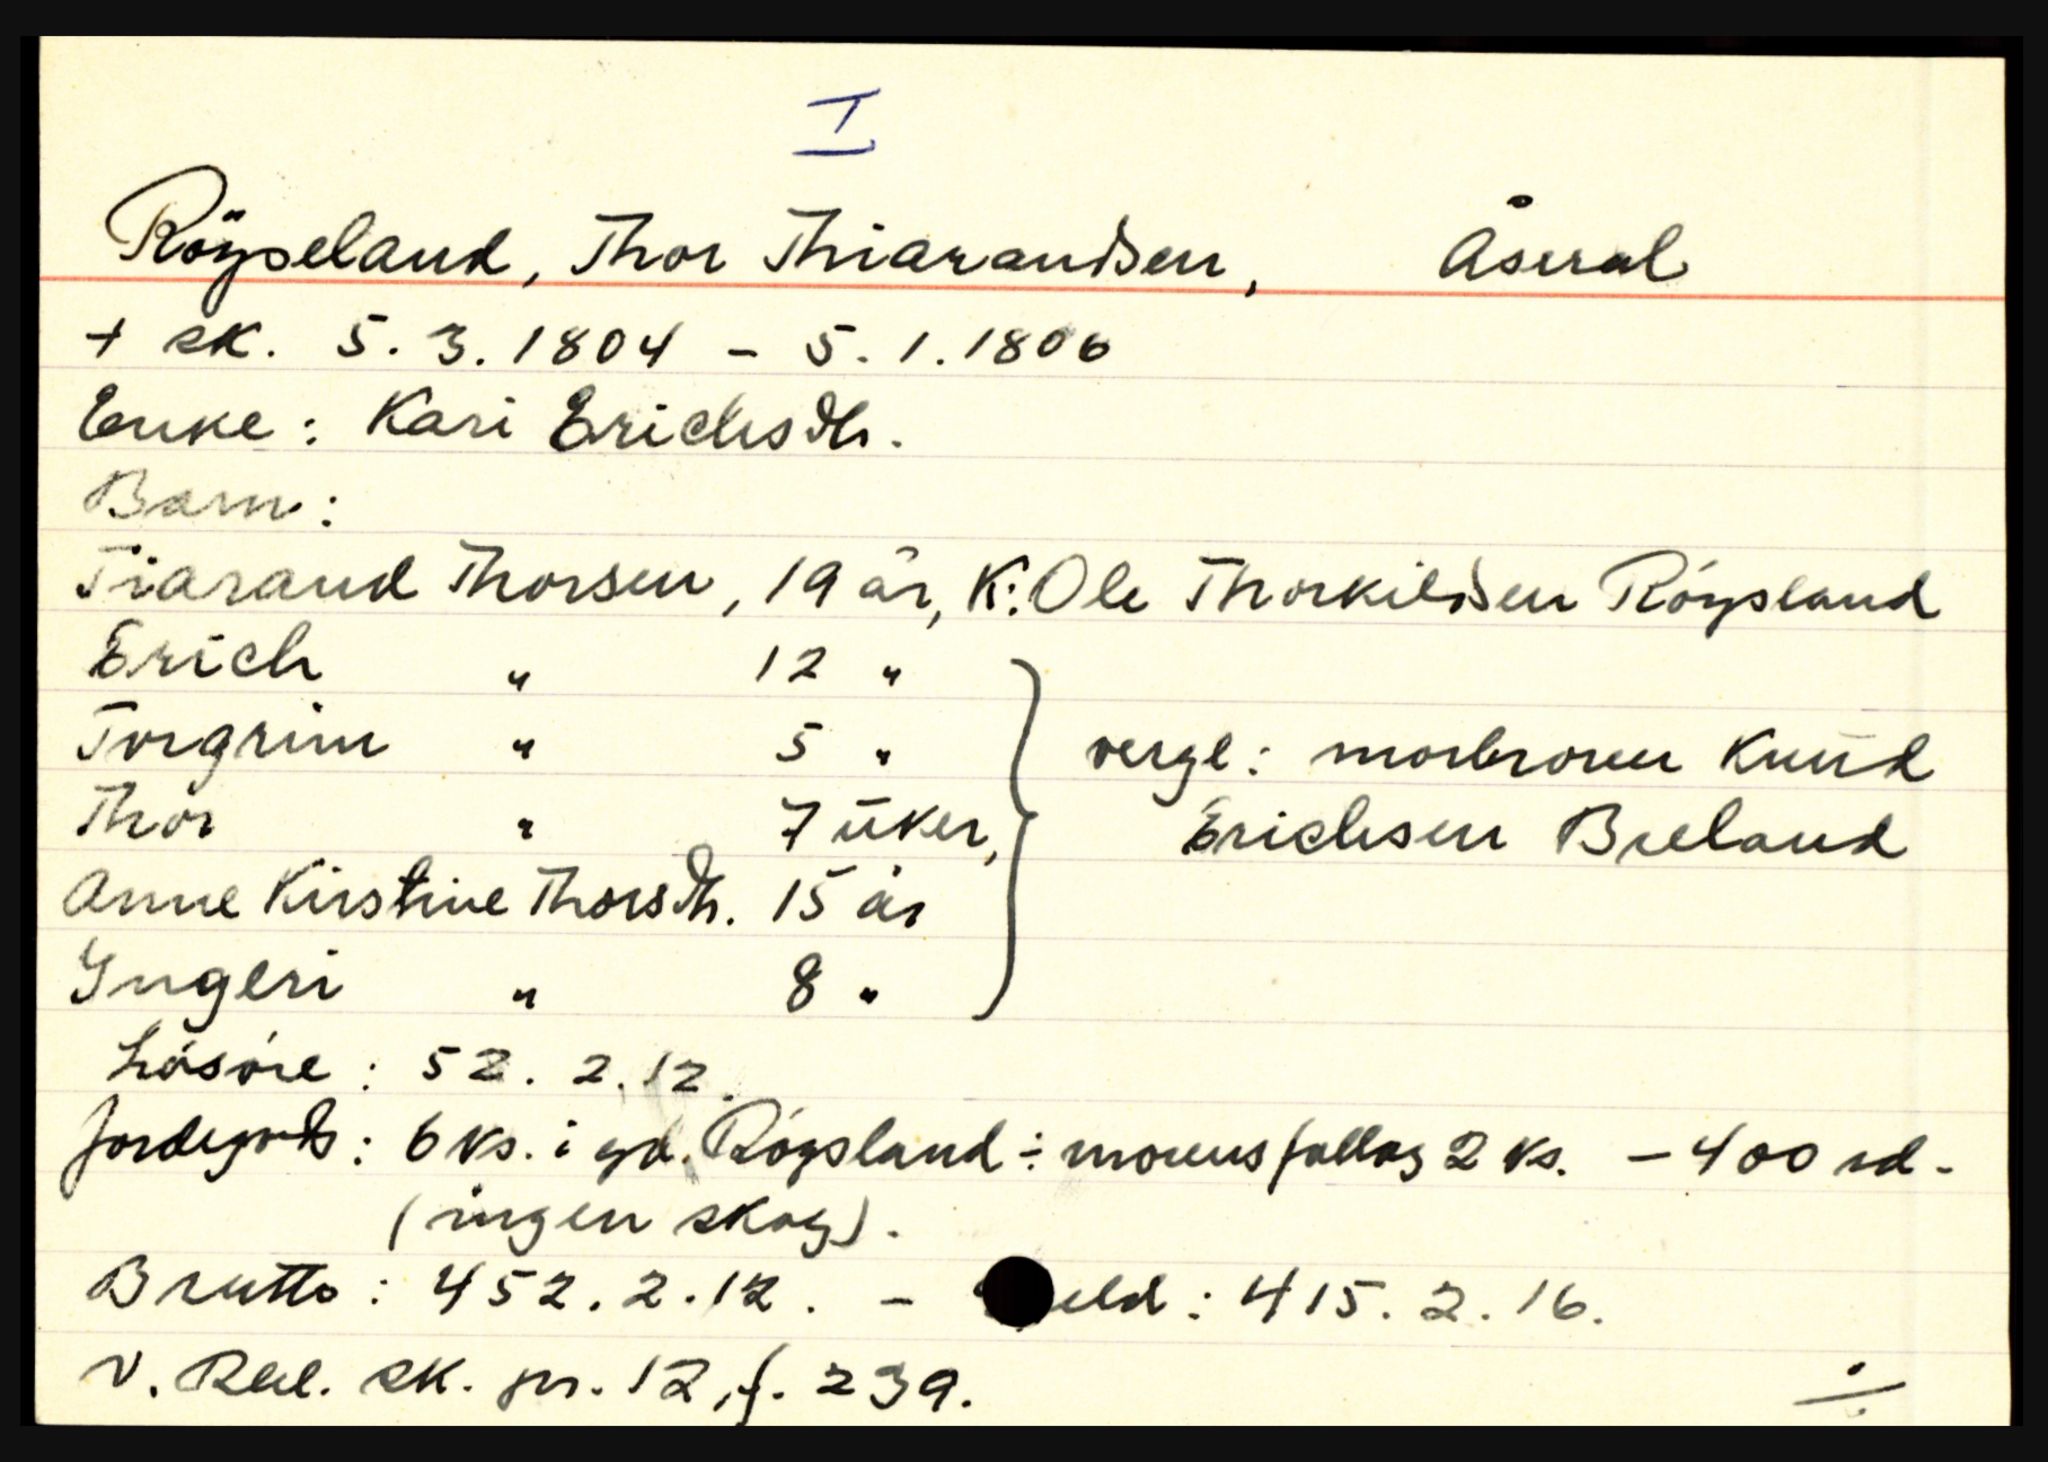 I
Röyseland, Thor Thiarandsen, Åseral
+ sk. 5.3.1804 - 5.1.1806
Enke: Kari Erichsdtr.
Barn:
Tiarand Thorsen, 19 år, K: Ole Thorkildsen Röysland
Erich " 12 "
Torgrim " 5 " verge: morbroren Knud
Thor " 7 uker, Erichsen Breland
Anne Kirstine Thorsdtr. 15 år
Yngeri " 8 "
Lösöre: 52.2.12.
Jordegods: 6 ks. i gd. Röysland ÷ morens fallag 2 ks. - 400 rd -
(ingen skog).
Brutto: 452.2.12. - eld: 415.2.16.
V. Råd. sk. pr. 12, f. 239. ÷